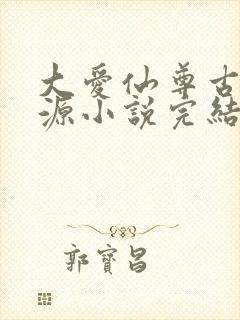 大愛仙尊古
源小說完結
郭寶昌